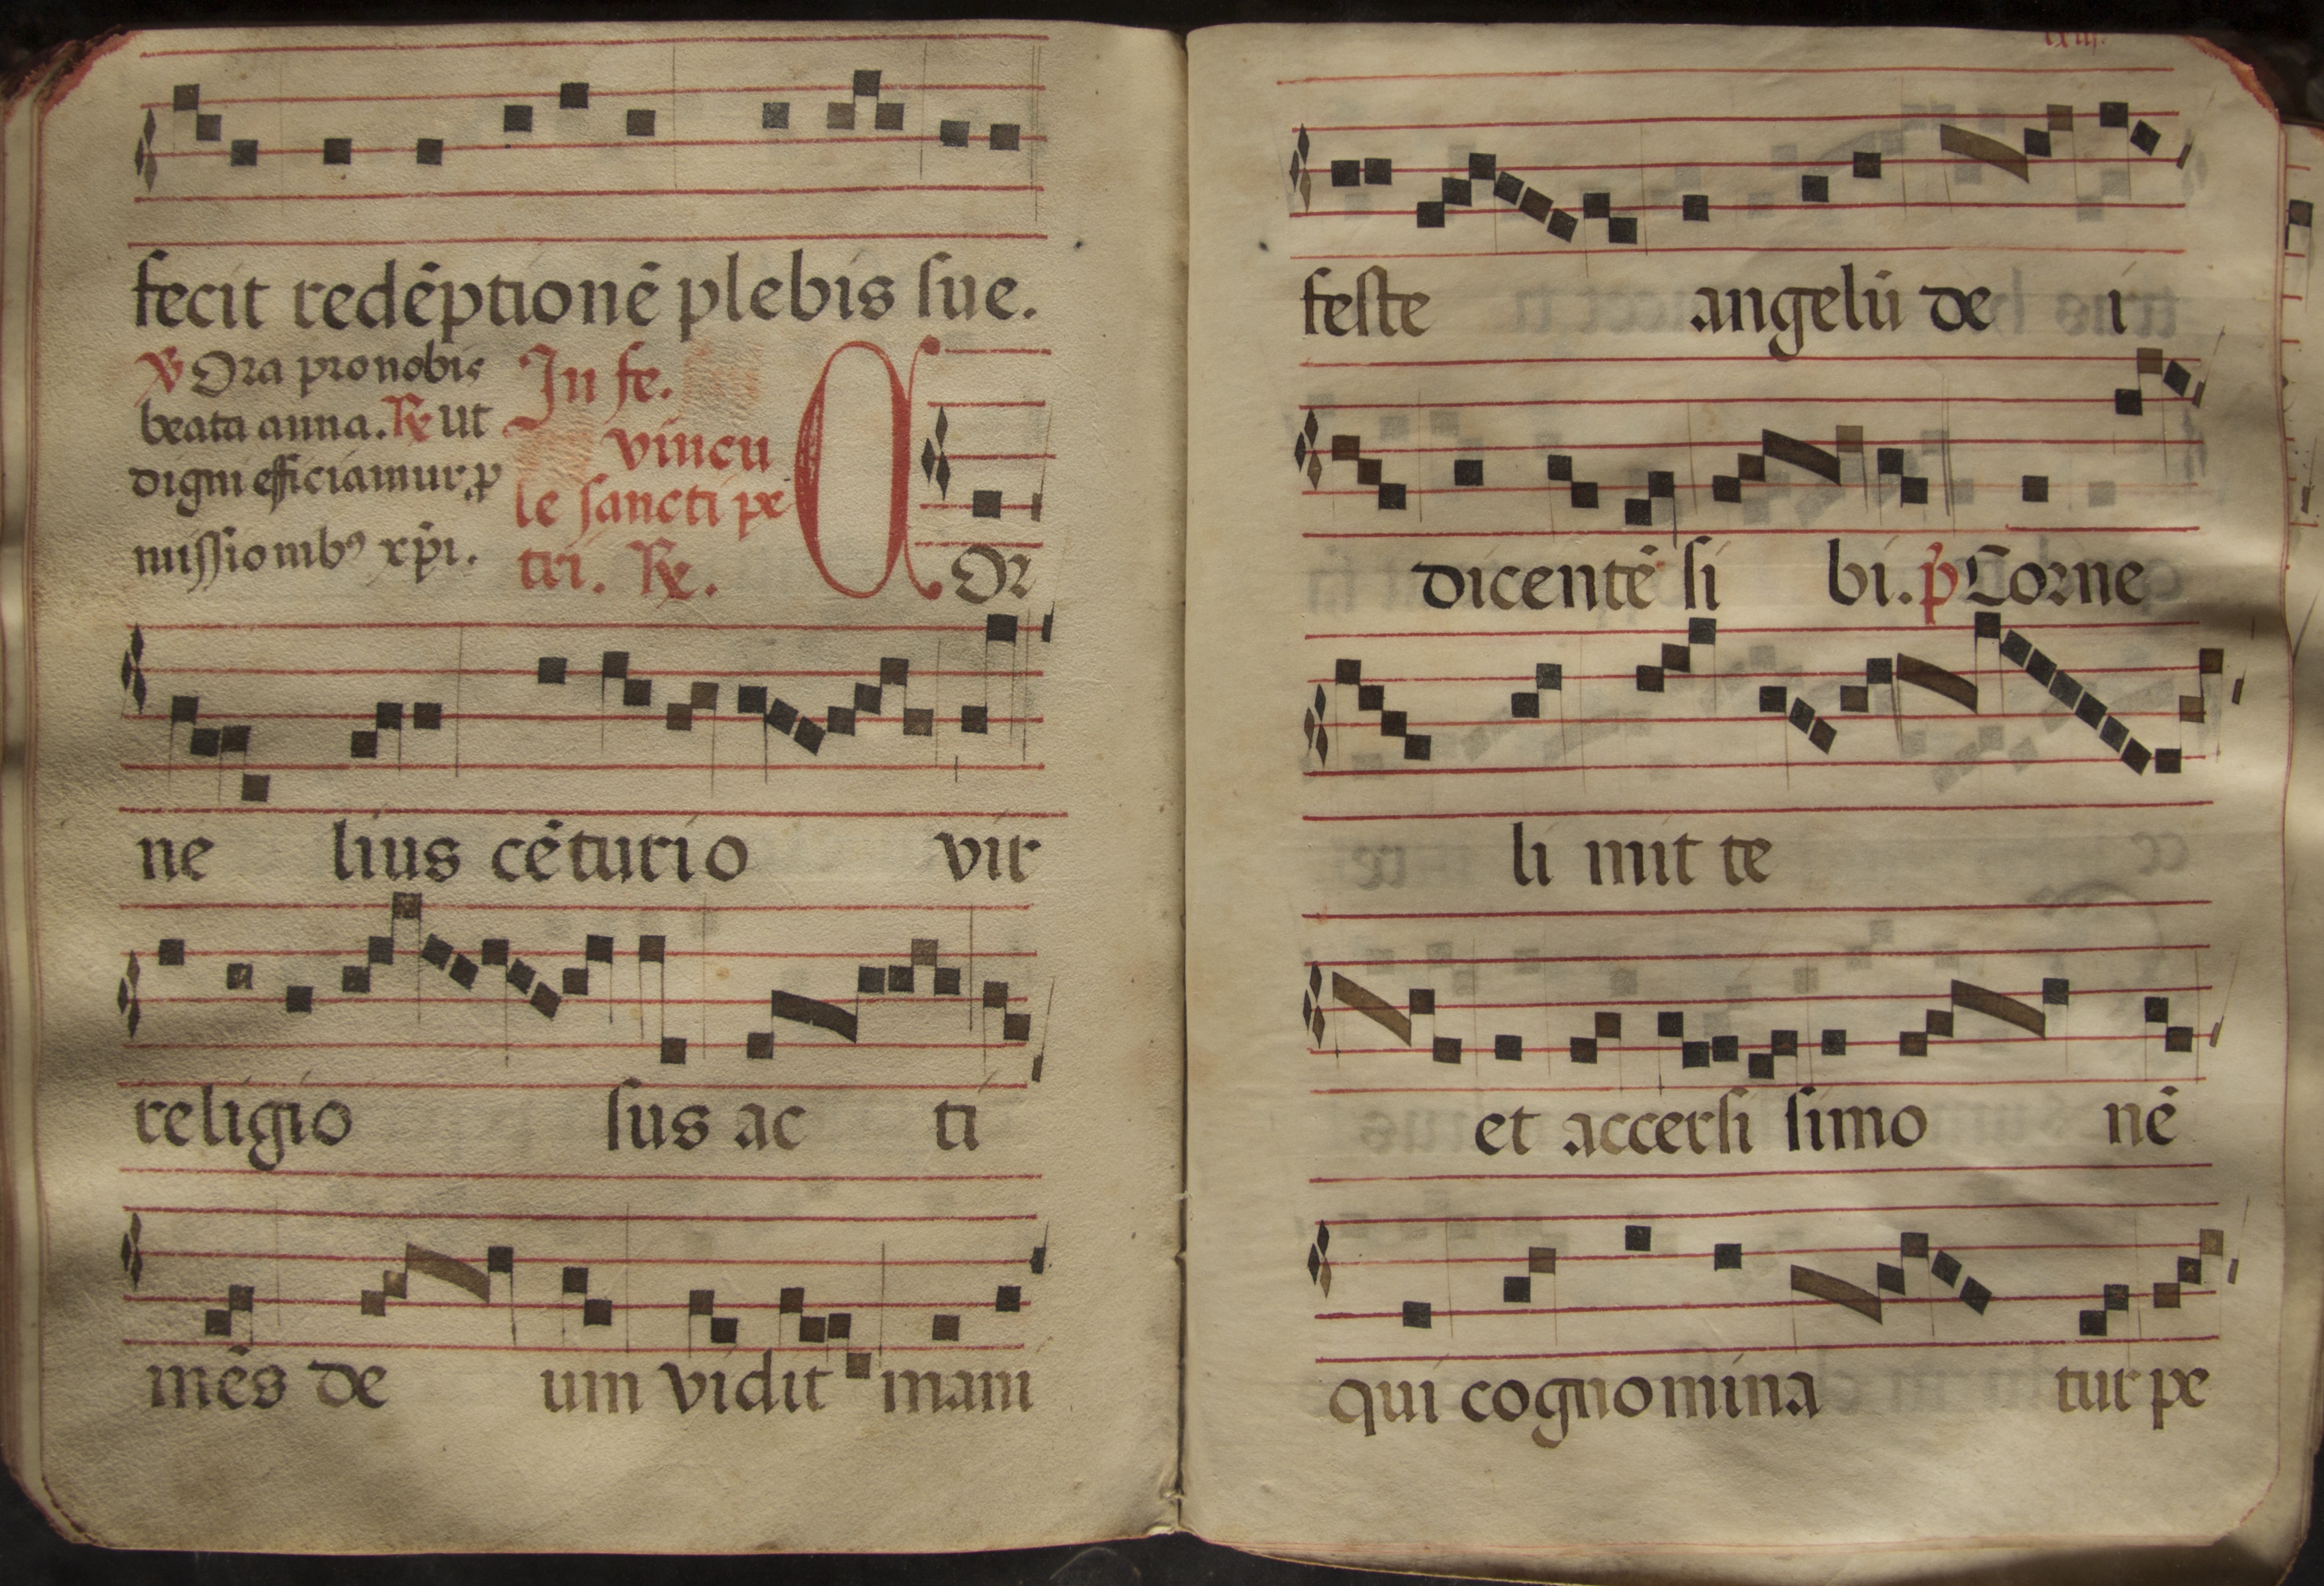 fecit redēptionē plebis sue.
℣ Ora pro nobis
beata anna. ℟ Ut
digni efficiamur p
missionibꝰ xp̄i.
In fe.
vincu
le sancti pe
tri. ℟.
C Or
ne lius cēturio vir
religio sus ac ti
mēs de um vidit mani
lxiii.
feste angelū de i
dicentē si bi. p̄ Corne
li mit te
et accersi simo nē
qui cognomina tur pe